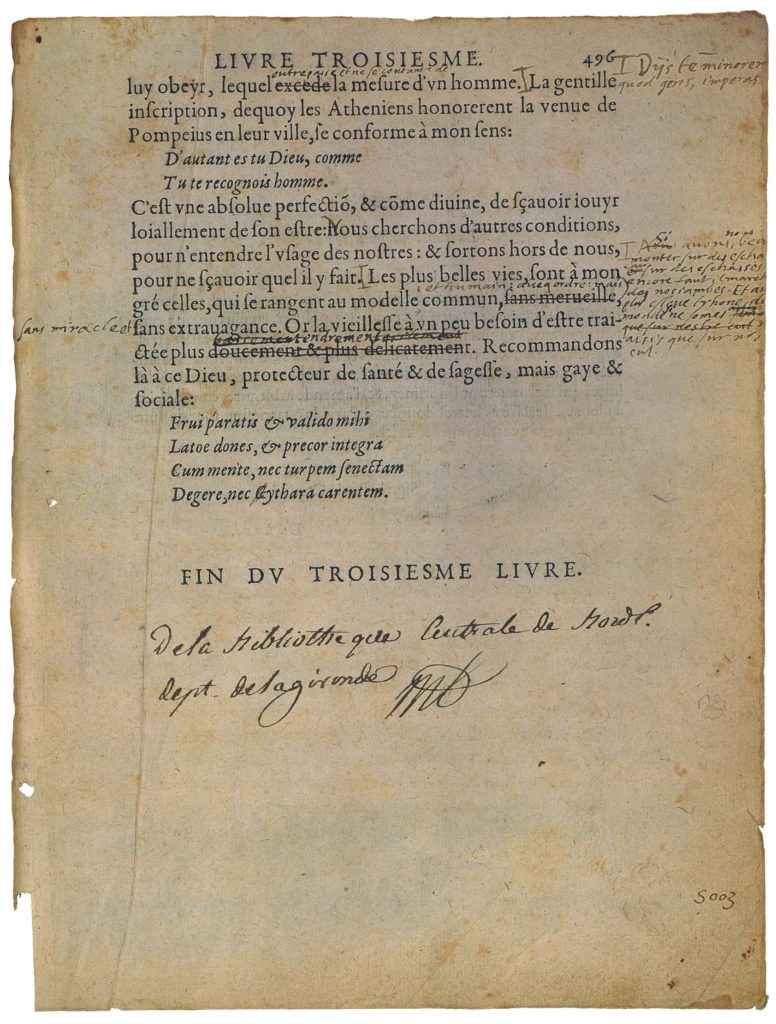 LIVRE TROISIESME. 496
luy obeyr, lequel excede la mesure d'vn homme. La gentille
I Dijs te minorem
quod geris, imperas
inscription, dequoy les Atheniens honorerent la venue de
Pompeius en leur ville, se conforme à mon sens:
D'autant es tu Dieu, comme
Tu te recognois homme.
C'est vne absolue perfectiō, & cōme diuine, de sçauoir iouyr
loiallement de son estre: Nous cherchons d'autres conditions,
pour n'entendre l'vsage des nostres: & sortons hors de nous,
pour ne sçauoir quel il y fait. Les plus belles vies, sont à mon
et humain: auec ordre: mais
gré celles, qui se rangent au modelle commun, sans merueille,
sans miracle et
sans extrauagance. Or la vieillesse à vn peu besoin d'estre trai-
tendrement
ctée plus doucement & plus delicatement. Recommandons
là à ce Dieu, protecteur de santé & de sagesse, mais gaye &
sociale:
Si auons nous
monter sur des
sur des eschasses
encore faut
nos iambes. Et au
plus throne du
monde ne somes
assis que sur nos
cul.
Frui paratis & valido mihi
Latoe dones, & precor integra
Cum mente, nec turpem senectam
Degere, nec Cythara carentem.
FIN DV TROISIESME LIVRE.
De la Bibliotheque Centrale de Bord.
dept. de la gironde
S 003